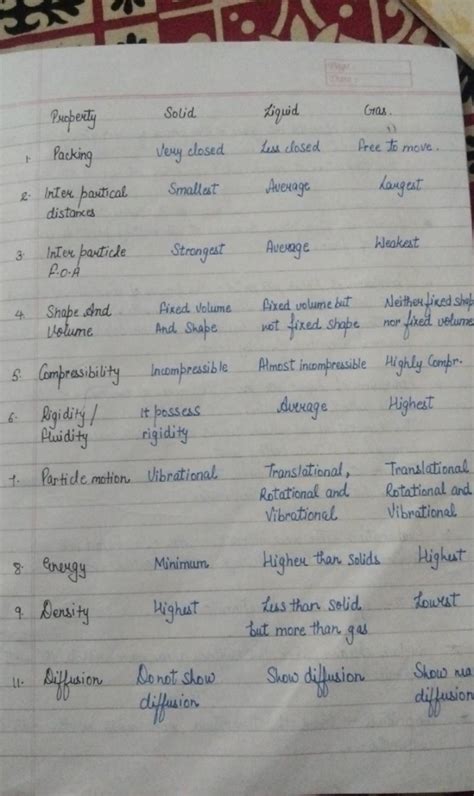 Page :
Date :
Property Solid Liquid Gas.
1. Packing Very closed Less closed Free to move.
2. Inter partical Smallest Average Largest
distances
3. Inter particle Strongest Average Weakest
F.O.A
4. Shape And Fixed Volume Fixed volume but Neither fixed shap
Volume And Shape not fixed shape nor fixed volume
5. Compressibility Incompressible Almost incompressible Highly Compr.
6. Rigidity/ It possess Average Highest
fluidity rigidity
7. Particle motion Vibrational Translational, Translational
Rotational and Rotational and
Vibrational Vibrational
8. Energy Minimum Higher than solids Highest
9. Density Highest Less than solid Lowest
but more than gas
11. Diffusion Do not show Show diffusion Show ma
diffusion diffusion